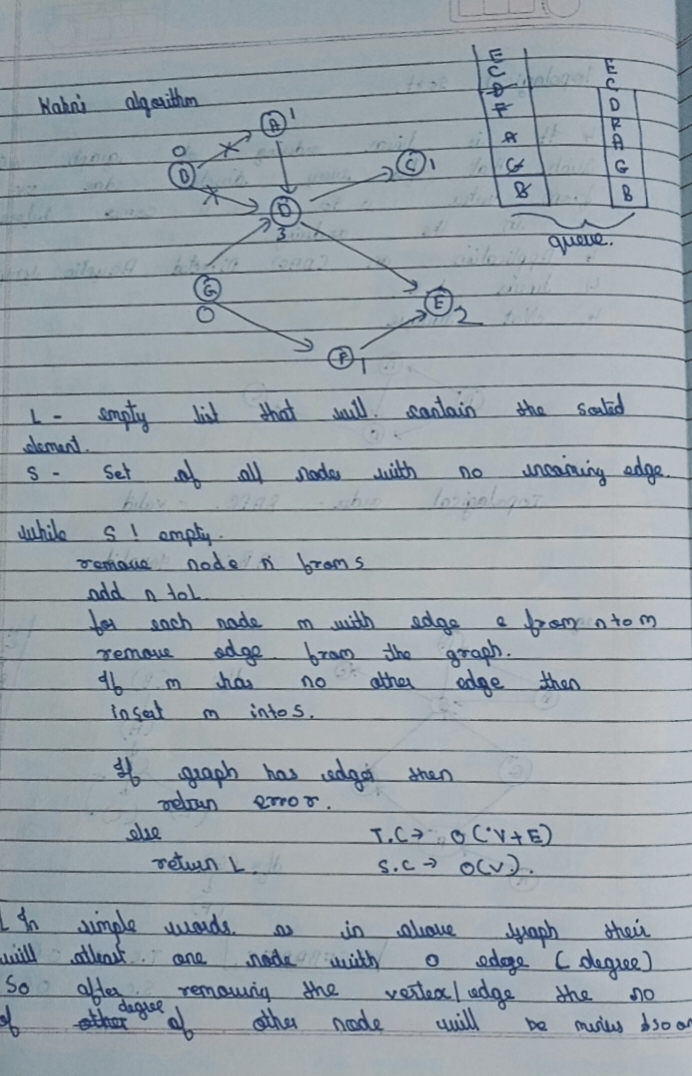 Kahn's algorithm
A 1
0
C 1
D
3
queue.
G
0
E 2
F 1
E
C
D
F
A
G
B
E
C
D
F
A
G
B
L - empty list that will contain the sorted
element.
S - Set of all nodes with no incoming edge.
while S ! empty.
remove node n from S
add n to L
for each node m with edge e from n to m
remove edge from the graph.
If m has no other edge then
insert m into S.
If graph has edges then
return error.
else T.C → O(V+E)
return L. S.C → O(V).
In simple words. as in above graph their
will atleast one node with 0 edge (degree)
So after removing the vertex/edge the no
of degree of other node will be minus